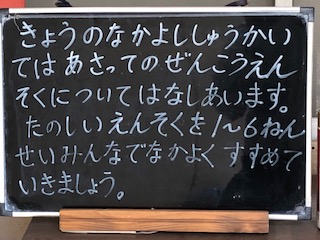 きょうのなかよししゅうかい
ではあさってのぜんこうえん
そくについてはなしあいます。
たのしいえんそくを1~6ねん
せいみんなでなかよくすすめて
いきましょう。